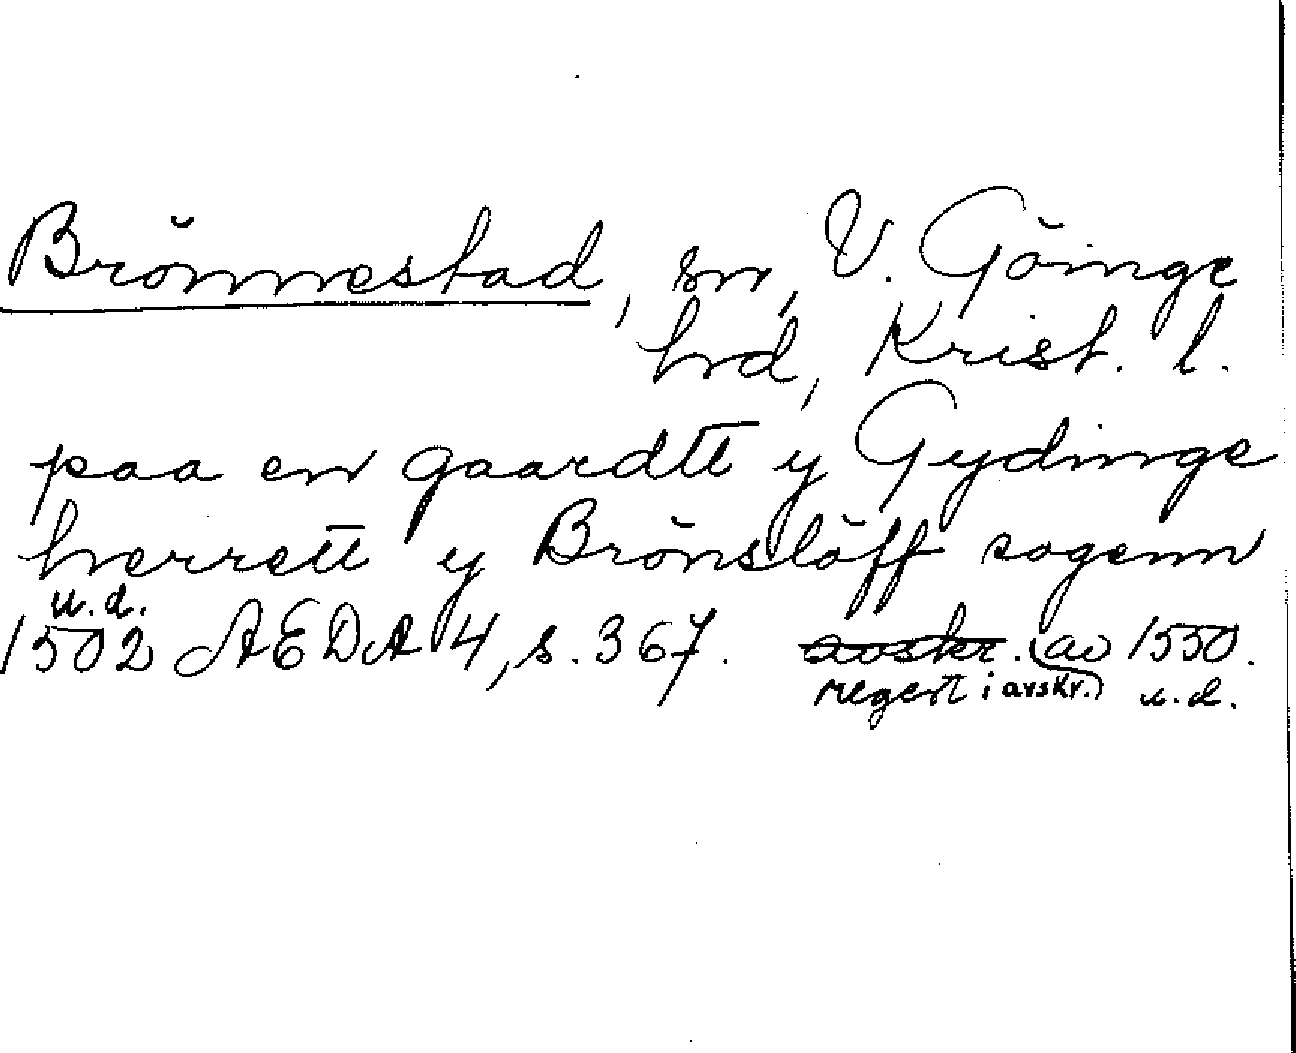 Brönnestad, sn, V. Göinge
hrd, Krist. l.
paa en gaardtt y Gydinge
herrett y Brönslöff sogenn
u.d.
1502 AEDA 4, s. 367. avskr. (av 1550.
regest i avskr.) u.d.